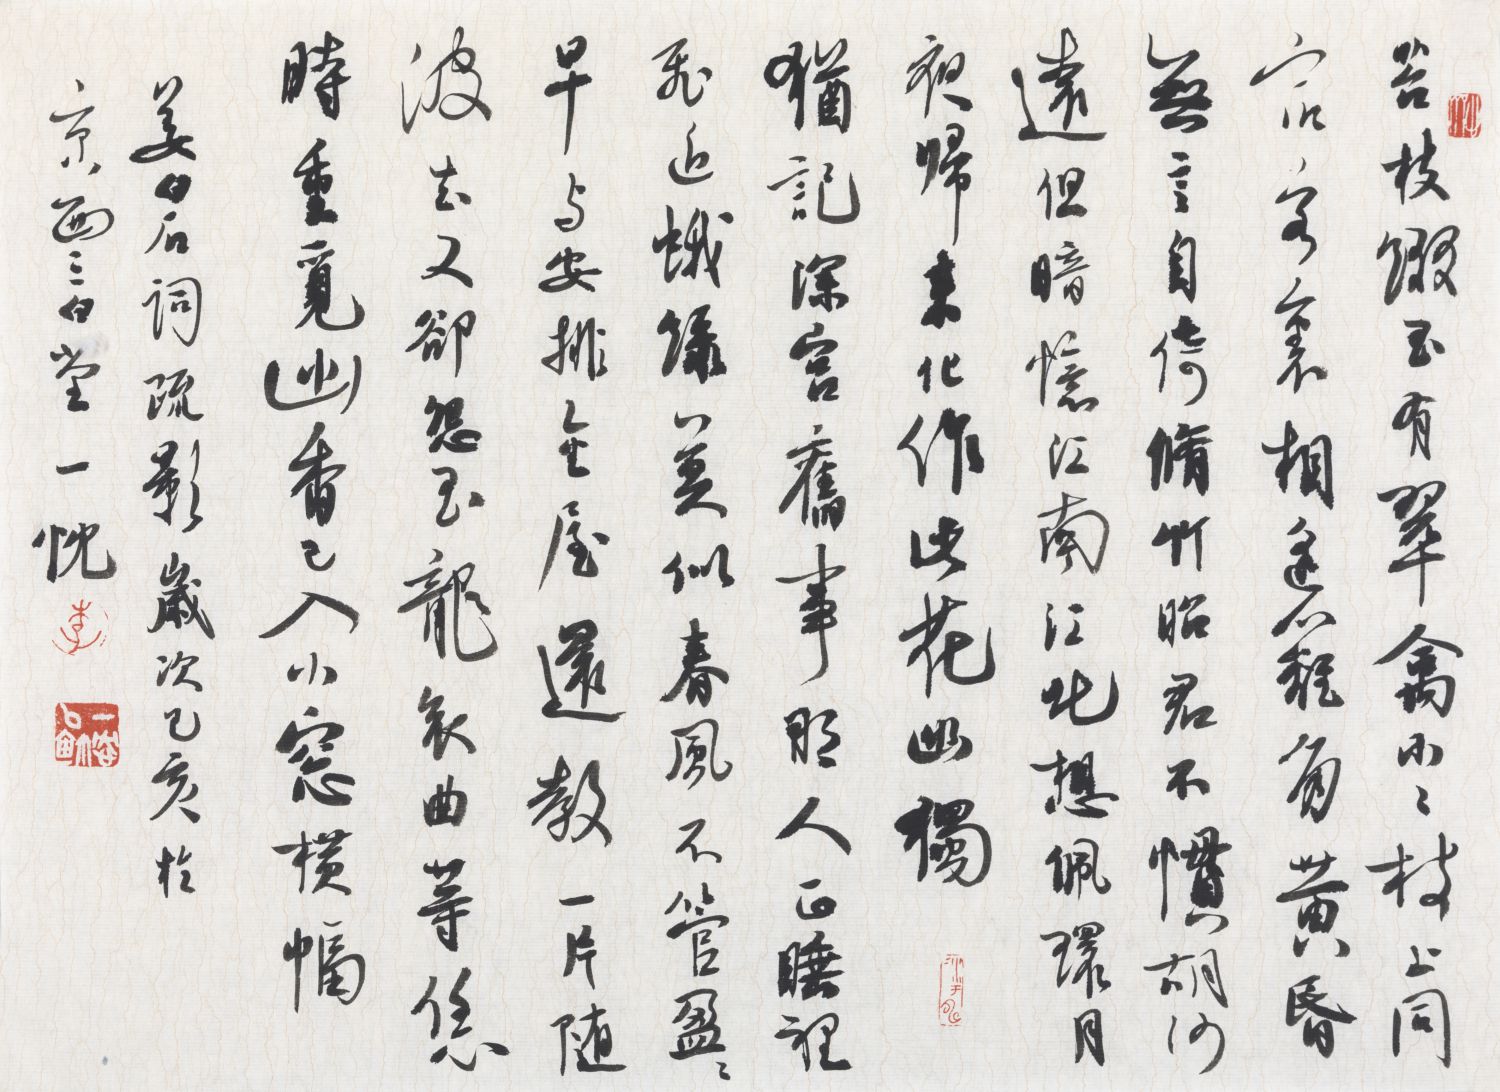 苔枝綴玉有翠禽小〻枝上同
宿客裏相逢籬角黄昏
無言自倚脩竹昭君不慣胡沙
遠但暗憶江南江北想佩環月
夜歸來化作此花幽獨
猶記深宮舊事那人正睡裡
飛近蛾緑莫似春風不管盈〻
早与安排金屋還教一片随
波去又卻怨玉龍哀曲等恁
時重覓幽香已入小窓横幅
姜白石詞疏影歲次己亥於
京西三白堂一忱
李